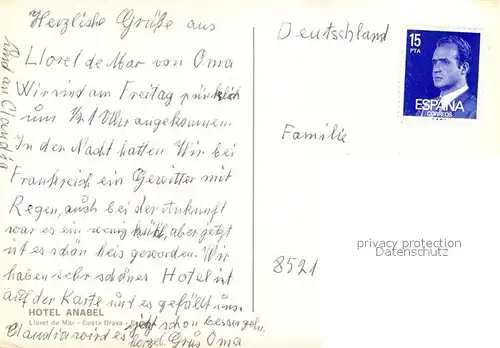 Herzliche Grüße aus
Lloret de Mar von Oma
Wir sind am Freitag pünktlich
um 1/2 1 Uhr angekommen.
In der Nacht hatten Wir bei
Frankreich ein Gewitter mit
Regen, auch bei der Ankunft
war es ein wenig kühl, aber jetzt
ist es schön heis geworden. Wir
haben sehr schönes Hotel ist
auf der Karte und es gefällt uns.
HOTEL ANABEL
Lloret de Mar - Costa Brava -
Claudia wird es jetzt schon besser gehn.
herzl. Grüs Oma
und an Claudia
Deutschland
15
PTA
ESPAÑA
CORREOS
Familie
privacy protection
Datenschutz
8521